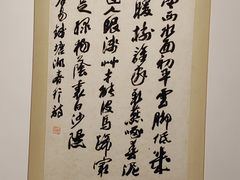 西水面初平雲脚低幾
暖樹誰家新燕啄春泥
人眼淺草才能沒馬蹄最
足綠楊蔭裏白沙堤
居易錢塘湖春行詩